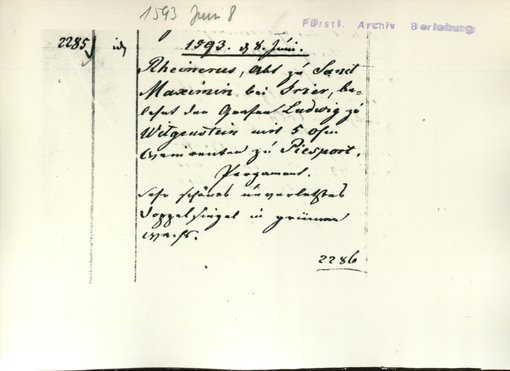 1593 Juni 8
Fürstl. Archiv Berleburg
2285
1593. d 8. Juni.
Rheinerus, Abt zu Sanct
Maximin bei Trier, be-
lehnt den Grafen Ludwig zu
Witgenstein mit 5 ohm
Weinrenten zu Piesport.
Pergament.
Sehr schönes unverletztes
Doppelsiegel in grünem
Wachs.
2286